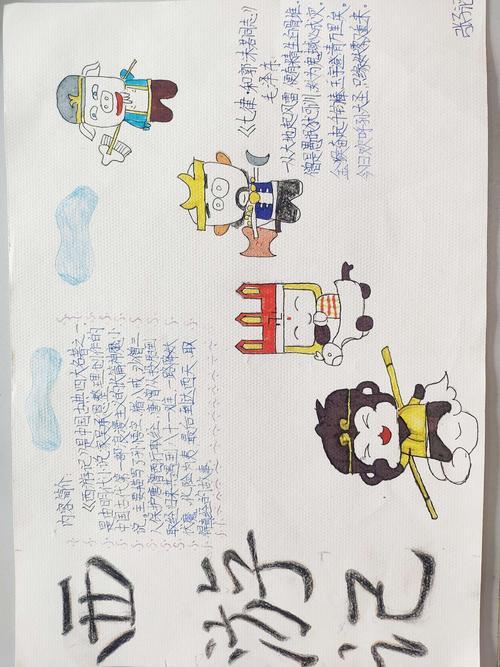 西游记
内容简介:
《西游记》是中国古典四大名著之一,
是由明代小说家吴承恩整理创作的
中国古代第一部浪漫主义长篇神魔小
说,主要描写了孙悟空、猪八戒、沙僧三
人保护唐僧西行取经,唐僧从投胎到
取经归来共遇到八十一难,一路降妖
伏魔,化险为夷,最后到达西天,取
得真经的故事。
《七律·和郭沫若同志》
毛泽东
一从大地起风雷,便有精生白骨堆。
僧是愚氓犹可训,妖为鬼蜮必成灾。
金猴奋起千钧棒,玉宇澄清万里埃。
今日欢呼孙大圣,只缘妖雾又重来。